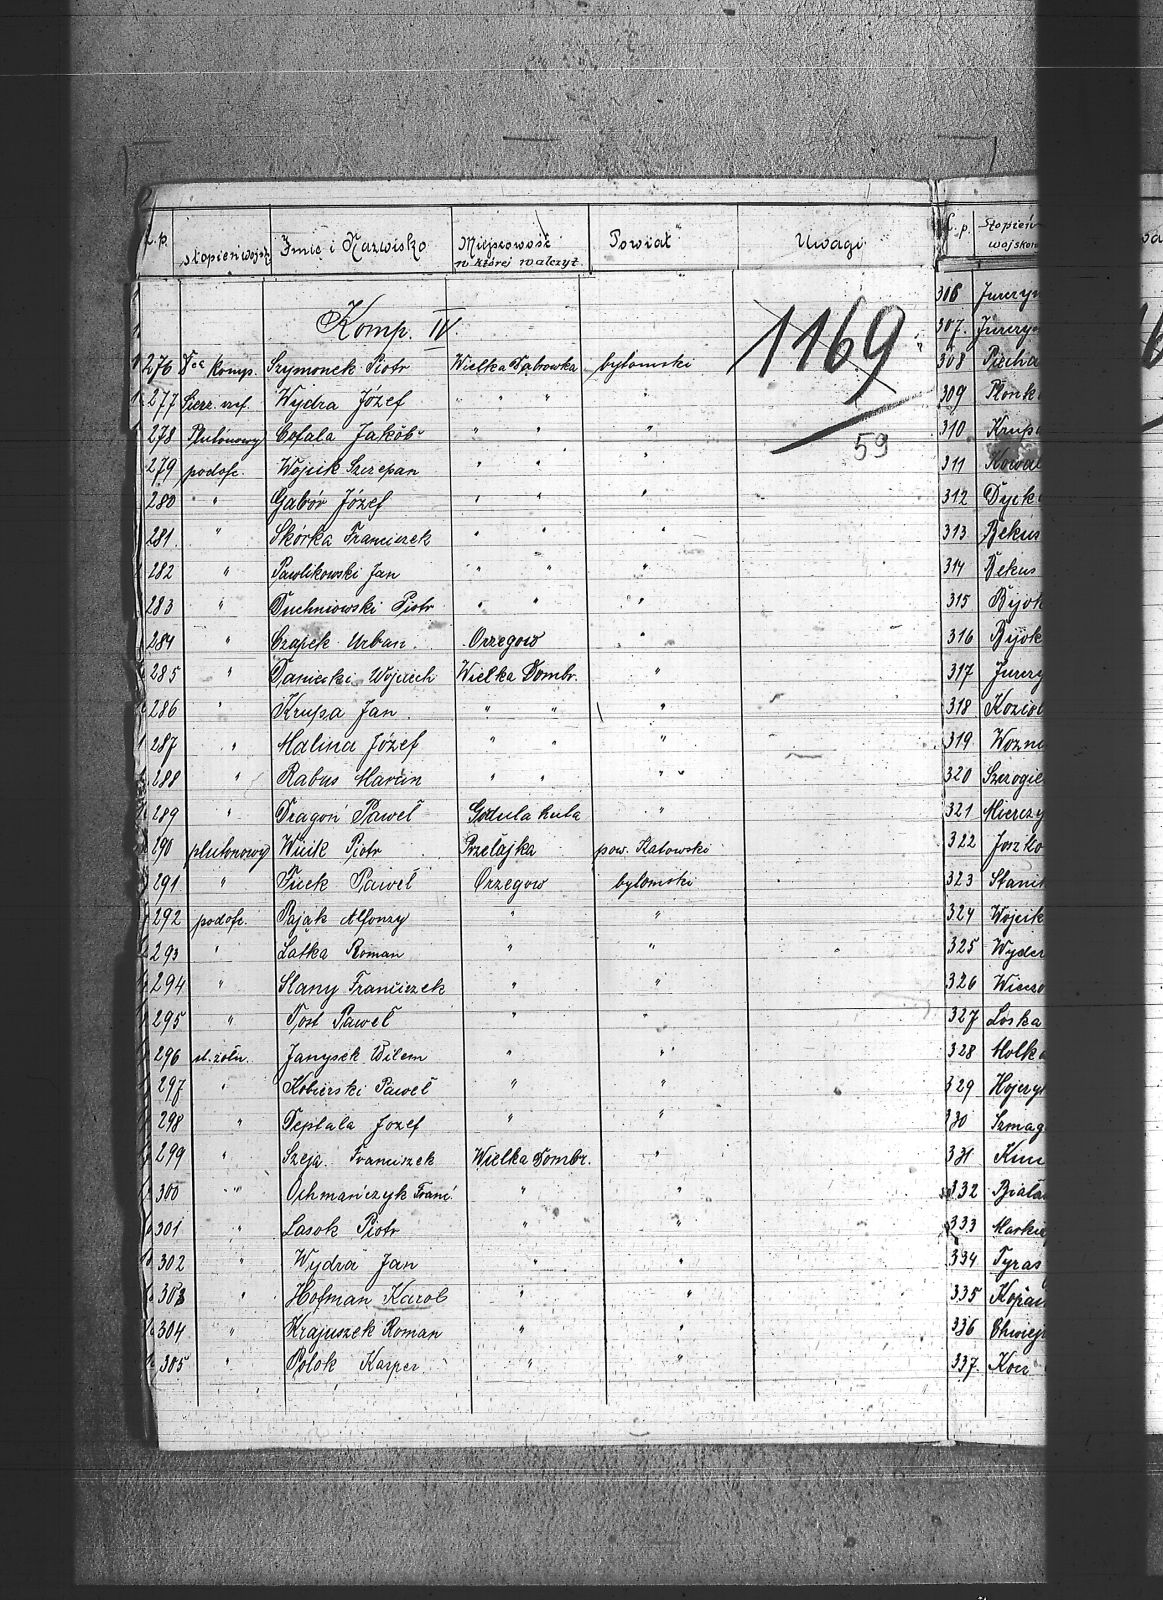 L.p. Stopień wojsk. Imię i Nazwisko Miejscowość w której walczył Powiat Uwagi
Komp. IV.
1169
59
276 Dca Komp. Szymonek Piotr Wielka Dąbrowka bytomski
277 Sierż. szef. Wydra Józef " " "
278 Plutonowy Cofala Jakób " " "
279 podofc. Wojcik Szczepan " " "
280 " Gabór Józef " " "
281. " Skórka Franciszek " " "
282 " Pawlikowski Jan " " "
283 " Duchniowski Piotr " " "
284 " Czapek Urban. Orzegow "
285 " Danicki Wojciech Wielka Dombr. "
286 " Krupa Jan. " " "
287 " Malina Józef " " "
288 " Rabus Marcin " " "
289 " Dragoń Paweł Godula huta "
290 plutonowy Wicik Piotr Przełajka pow. Katowski
291 " Fuck Paweł Orzegow bytomski
292 podofc. Pająk Alfonzy " "
293 " Latka Roman " "
294 " Slany Franciszek " "
295 " Tost Paweł " "
296 st. żołn. Janysek Wilem " "
297 " Kobierski Paweł " "
298 " Peplala Jozef " "
299 " Szeja. Franciszek Wielka Dombr. "
300 " Ochmańczyk Franc. " "
301 " Lasok Piotr " "
302 Wydra Jan " "
303 " Hofman Karol " "
304 " Krajuszek Roman " "
305 " Polok Kasper " "
L.p. Stopień wojskow
306 Jurczy
307. Jurczy
308 Piecha
309 Plonk
310 Krup
311 Kowal
312 Dyck
313 Bekus
314 Bekus
315 Bijok
316 Bijok
317 Jurczy
318 Kozio
319 Wozn
320 Szrogie
321 Mierczy
322 Joszko
323 Stanik
324 Wojcik
325 Wyder
326 Wieczo
327 Loska
328 Molka
329 Hojczy
330 Szmag
331
332 Biala
333 Marku
334 Tyras
335 Kopa
336 Chwiej
337.